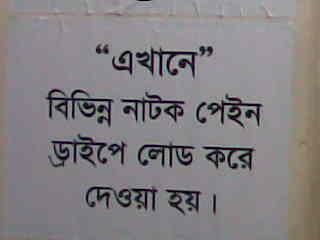 “এখানে”
বিভিন্ন নাটক পেইন
ড্রাইপে লোড করে
দেওয়া হয়।